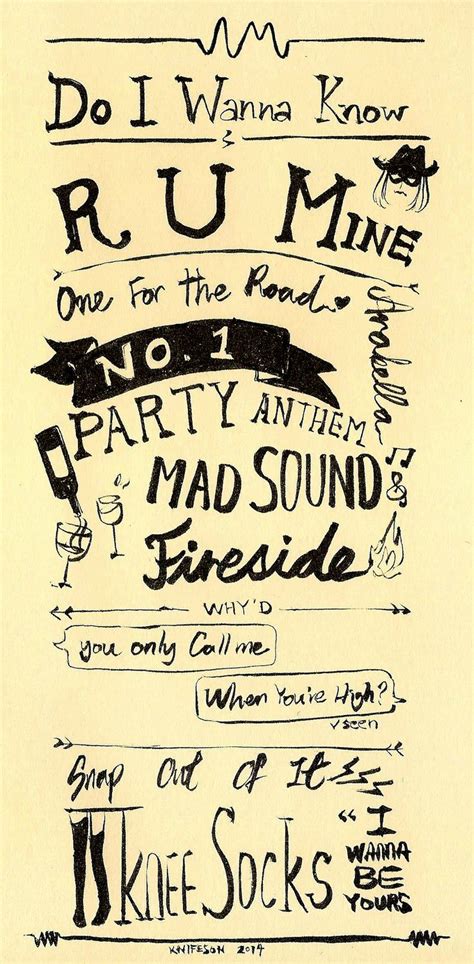 Do I Wanna Know
R U MINE
One For the Road
Arabella
NO. 1
PARTY ANTHEM
MAD SOUND
Fireside
WHY'D
you only Call me
When You're High?
✓seen
Snap Out of It
KNEE SOCKS
"I
WANNA
BE
YOURS
KNIFESON 2014